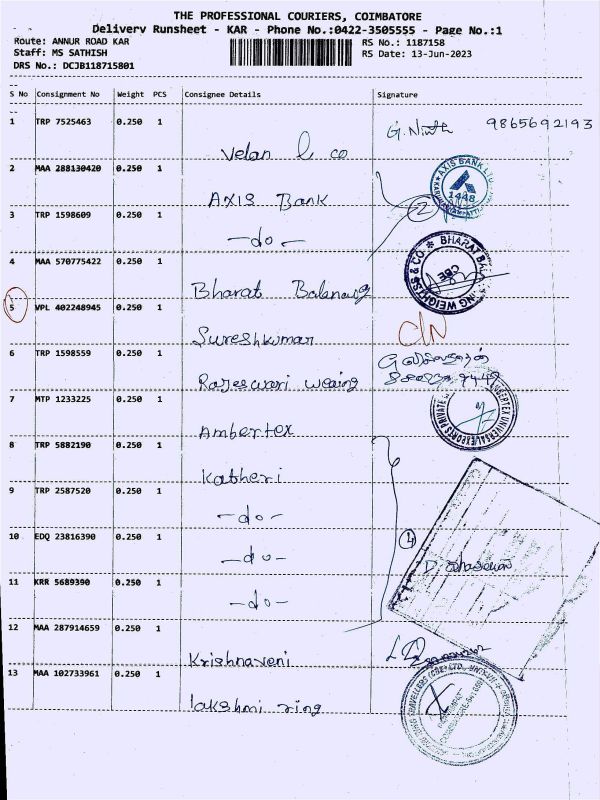 THE PROFESSIONAL COURIERS, COIMBATORE
Delivery Runsheet - KAR - Phone No.:0422-3505555 - Page No.:1
Route: ANNUR ROAD KAR
RS No.: 1187158
Staff: MS SATHISH
RS Date: 13-Jun-2023
DRS No.: DCJB118715801
S No Consignment No Weight PCS Consignee Details Signature
1 TRP 7525463 0.250 1
G. 9865692193
Velan & co
2 MAA 288130420 0.250 1
AXIS BANK LTD
1448
AXIS Bank
2
3 TRP 1598609 0.250 1
-do-
4 MAA 570775422 0.250 1
BHARAT BALANCING WEIGHTSS & CO
CBE
Bharat
5 VPL 402248945 0.250 1
C/N
Sureshkumar
6 TRP 1598559 0.250 1
Rajeswari
7 MTP 1233225 0.250 1
AMBERTEX UNIVERSAL EXPORTS PRIVATE
Ambertex
8 TRP 5882190 0.250 1
Katheri
9 TRP 2587520 0.250 1
-do-
10 EDQ 23816390 0.250 1
4
-do-
11 KRR 5689390 0.250 1
-do-
12 MAA 287914659 0.250 1
Krishnaveni
13 MAA 102733961 0.250 1
lakshmi ring